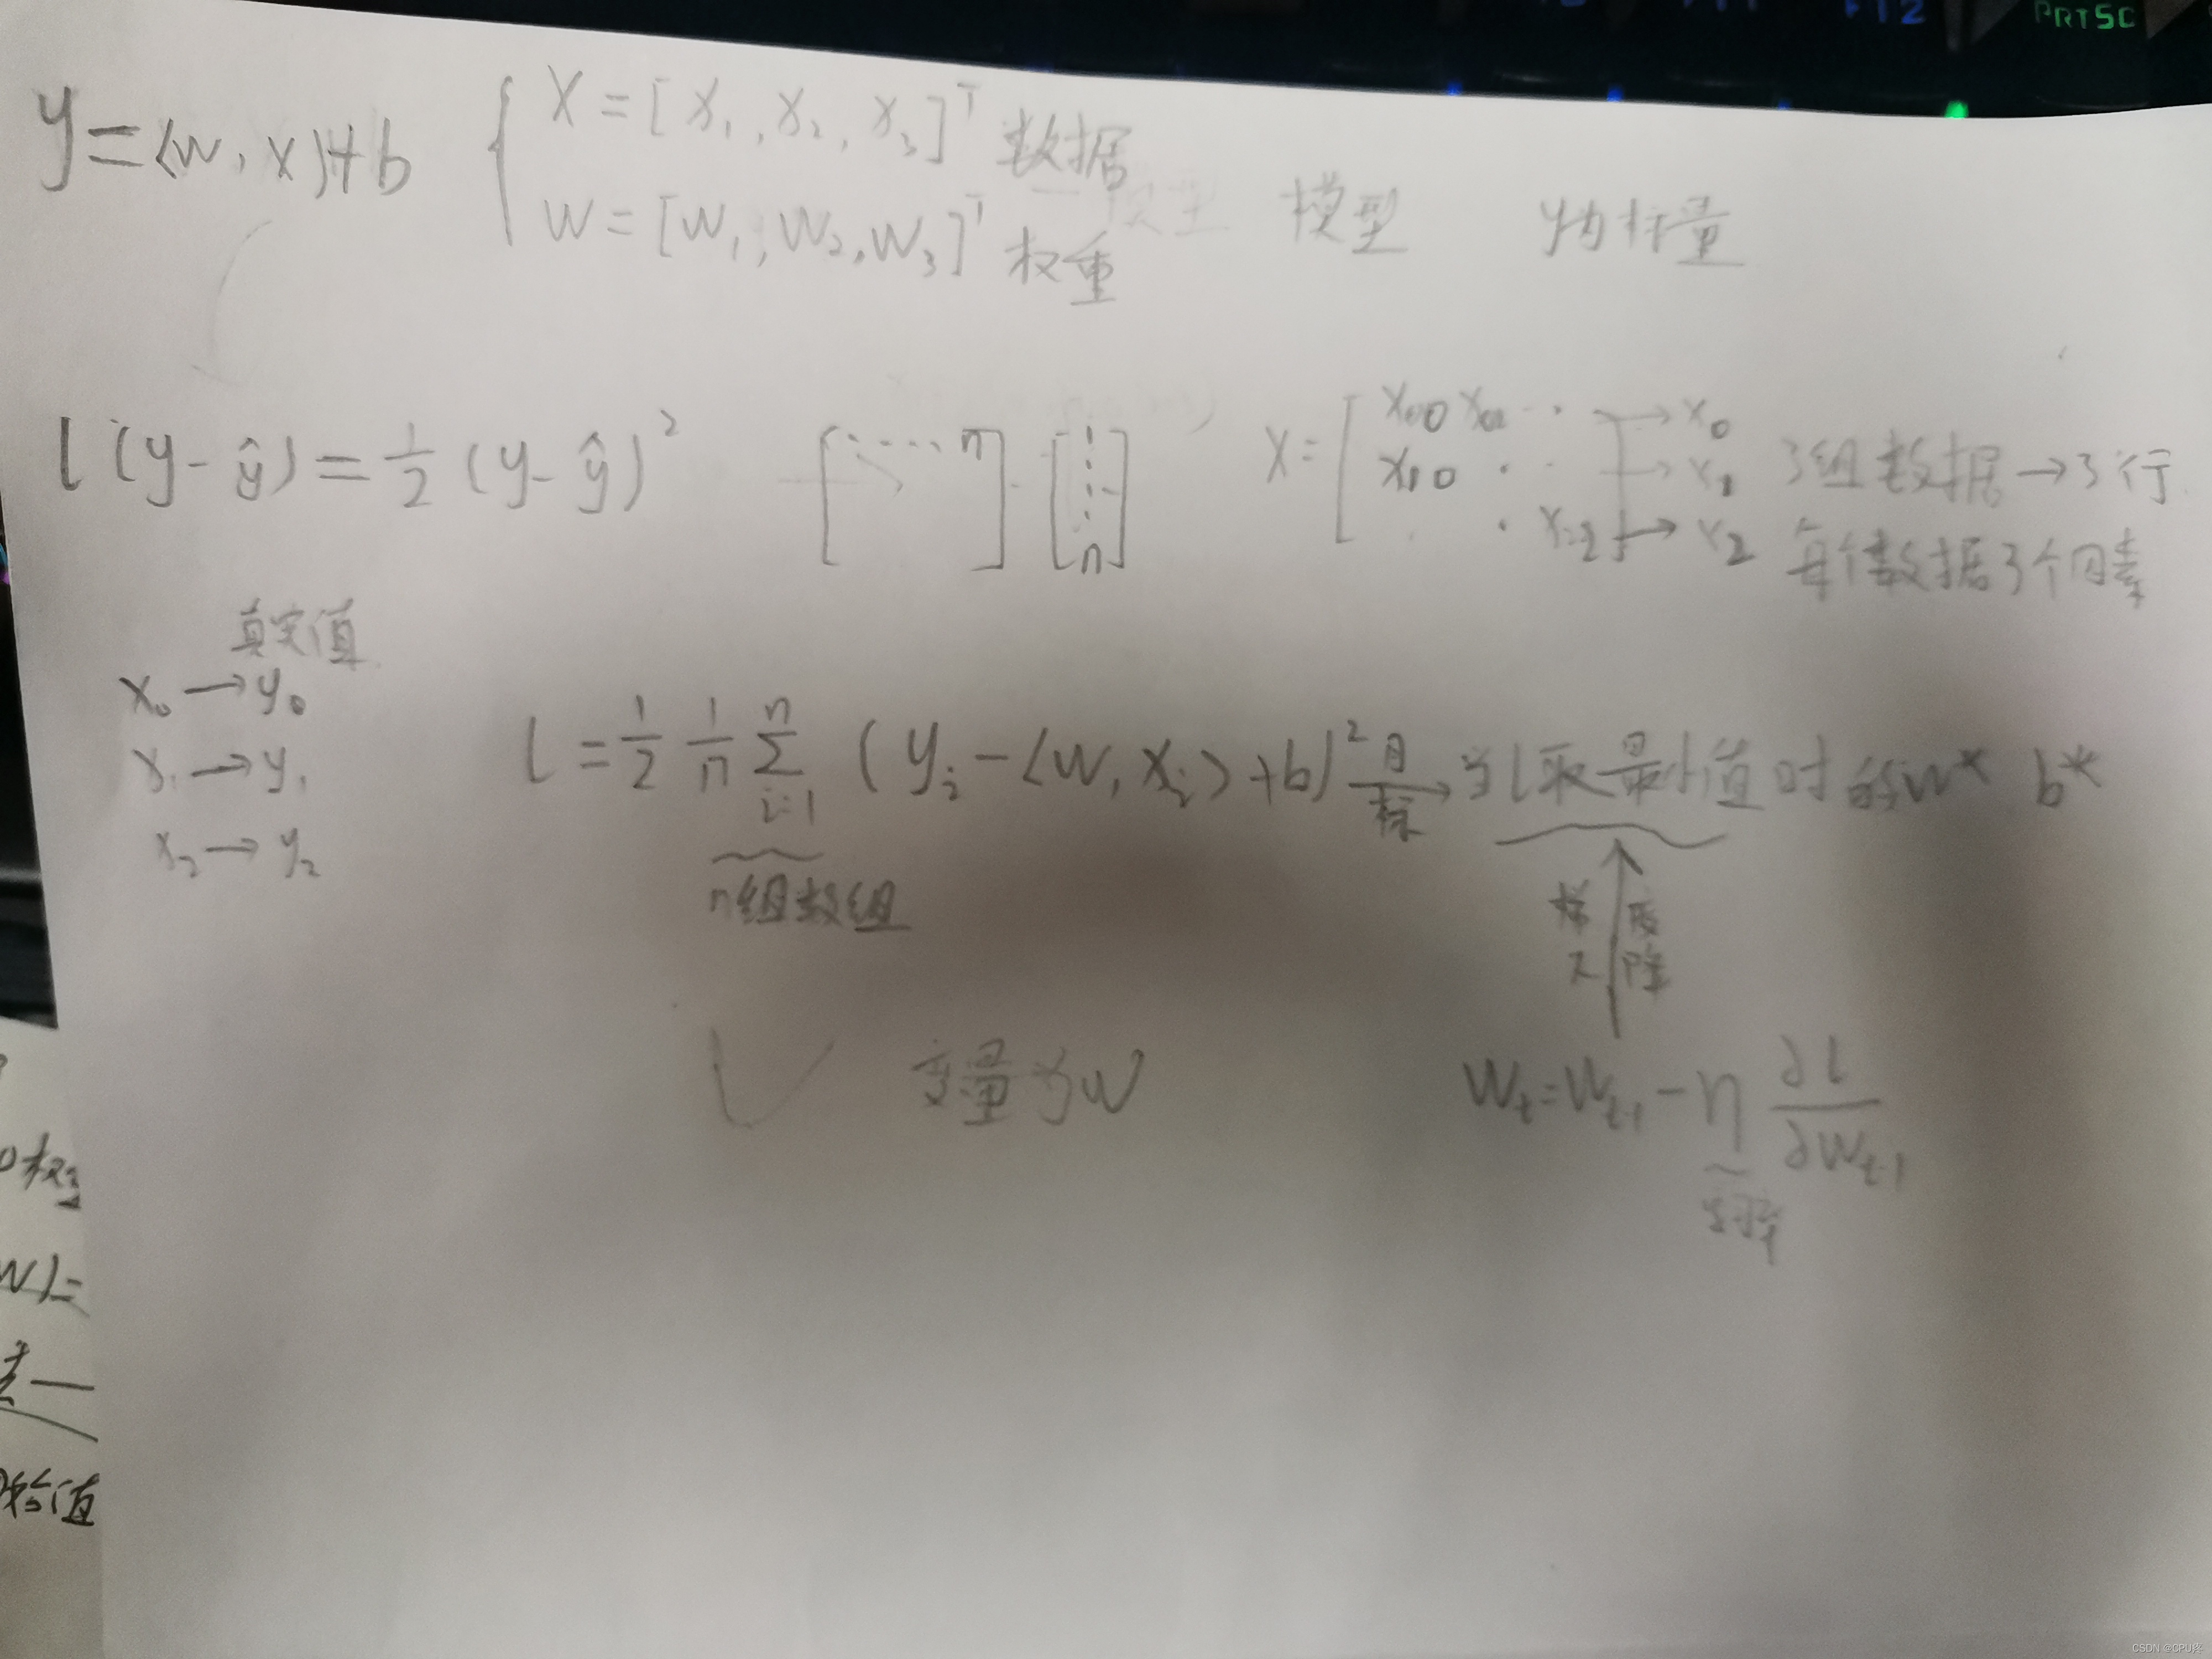 PRTSC
F12
y=⟨w,x⟩+b
X=[x₁,x₂,x₃]ᵀ 数据
W=[w₁,w₂,w₃]ᵀ 权重
模型
y为标量
l(y-ŷ)=½(y-ŷ)²
[....n]·[⋮n]
X=[x₀₀ x₀₁ ... →x₀
x₁₀ · · →x₁ 3组数据→3行
· · x₂₂]→x₂ 每个数据3个因素
真实值
x₀→y₀
x₁→y₁
x₂→y₂
l=½ 1/n Σᵢ₌₁ⁿ (yᵢ-⟨w,xᵢ⟩+b)² 目标→当l取最小值时的w* b*
n组数组
梯度下降
变量为w
wₜ=wₜ₋₁-η ∂l/∂wₜ₋₁
学习率
w)=
始值
CSDN @CPU